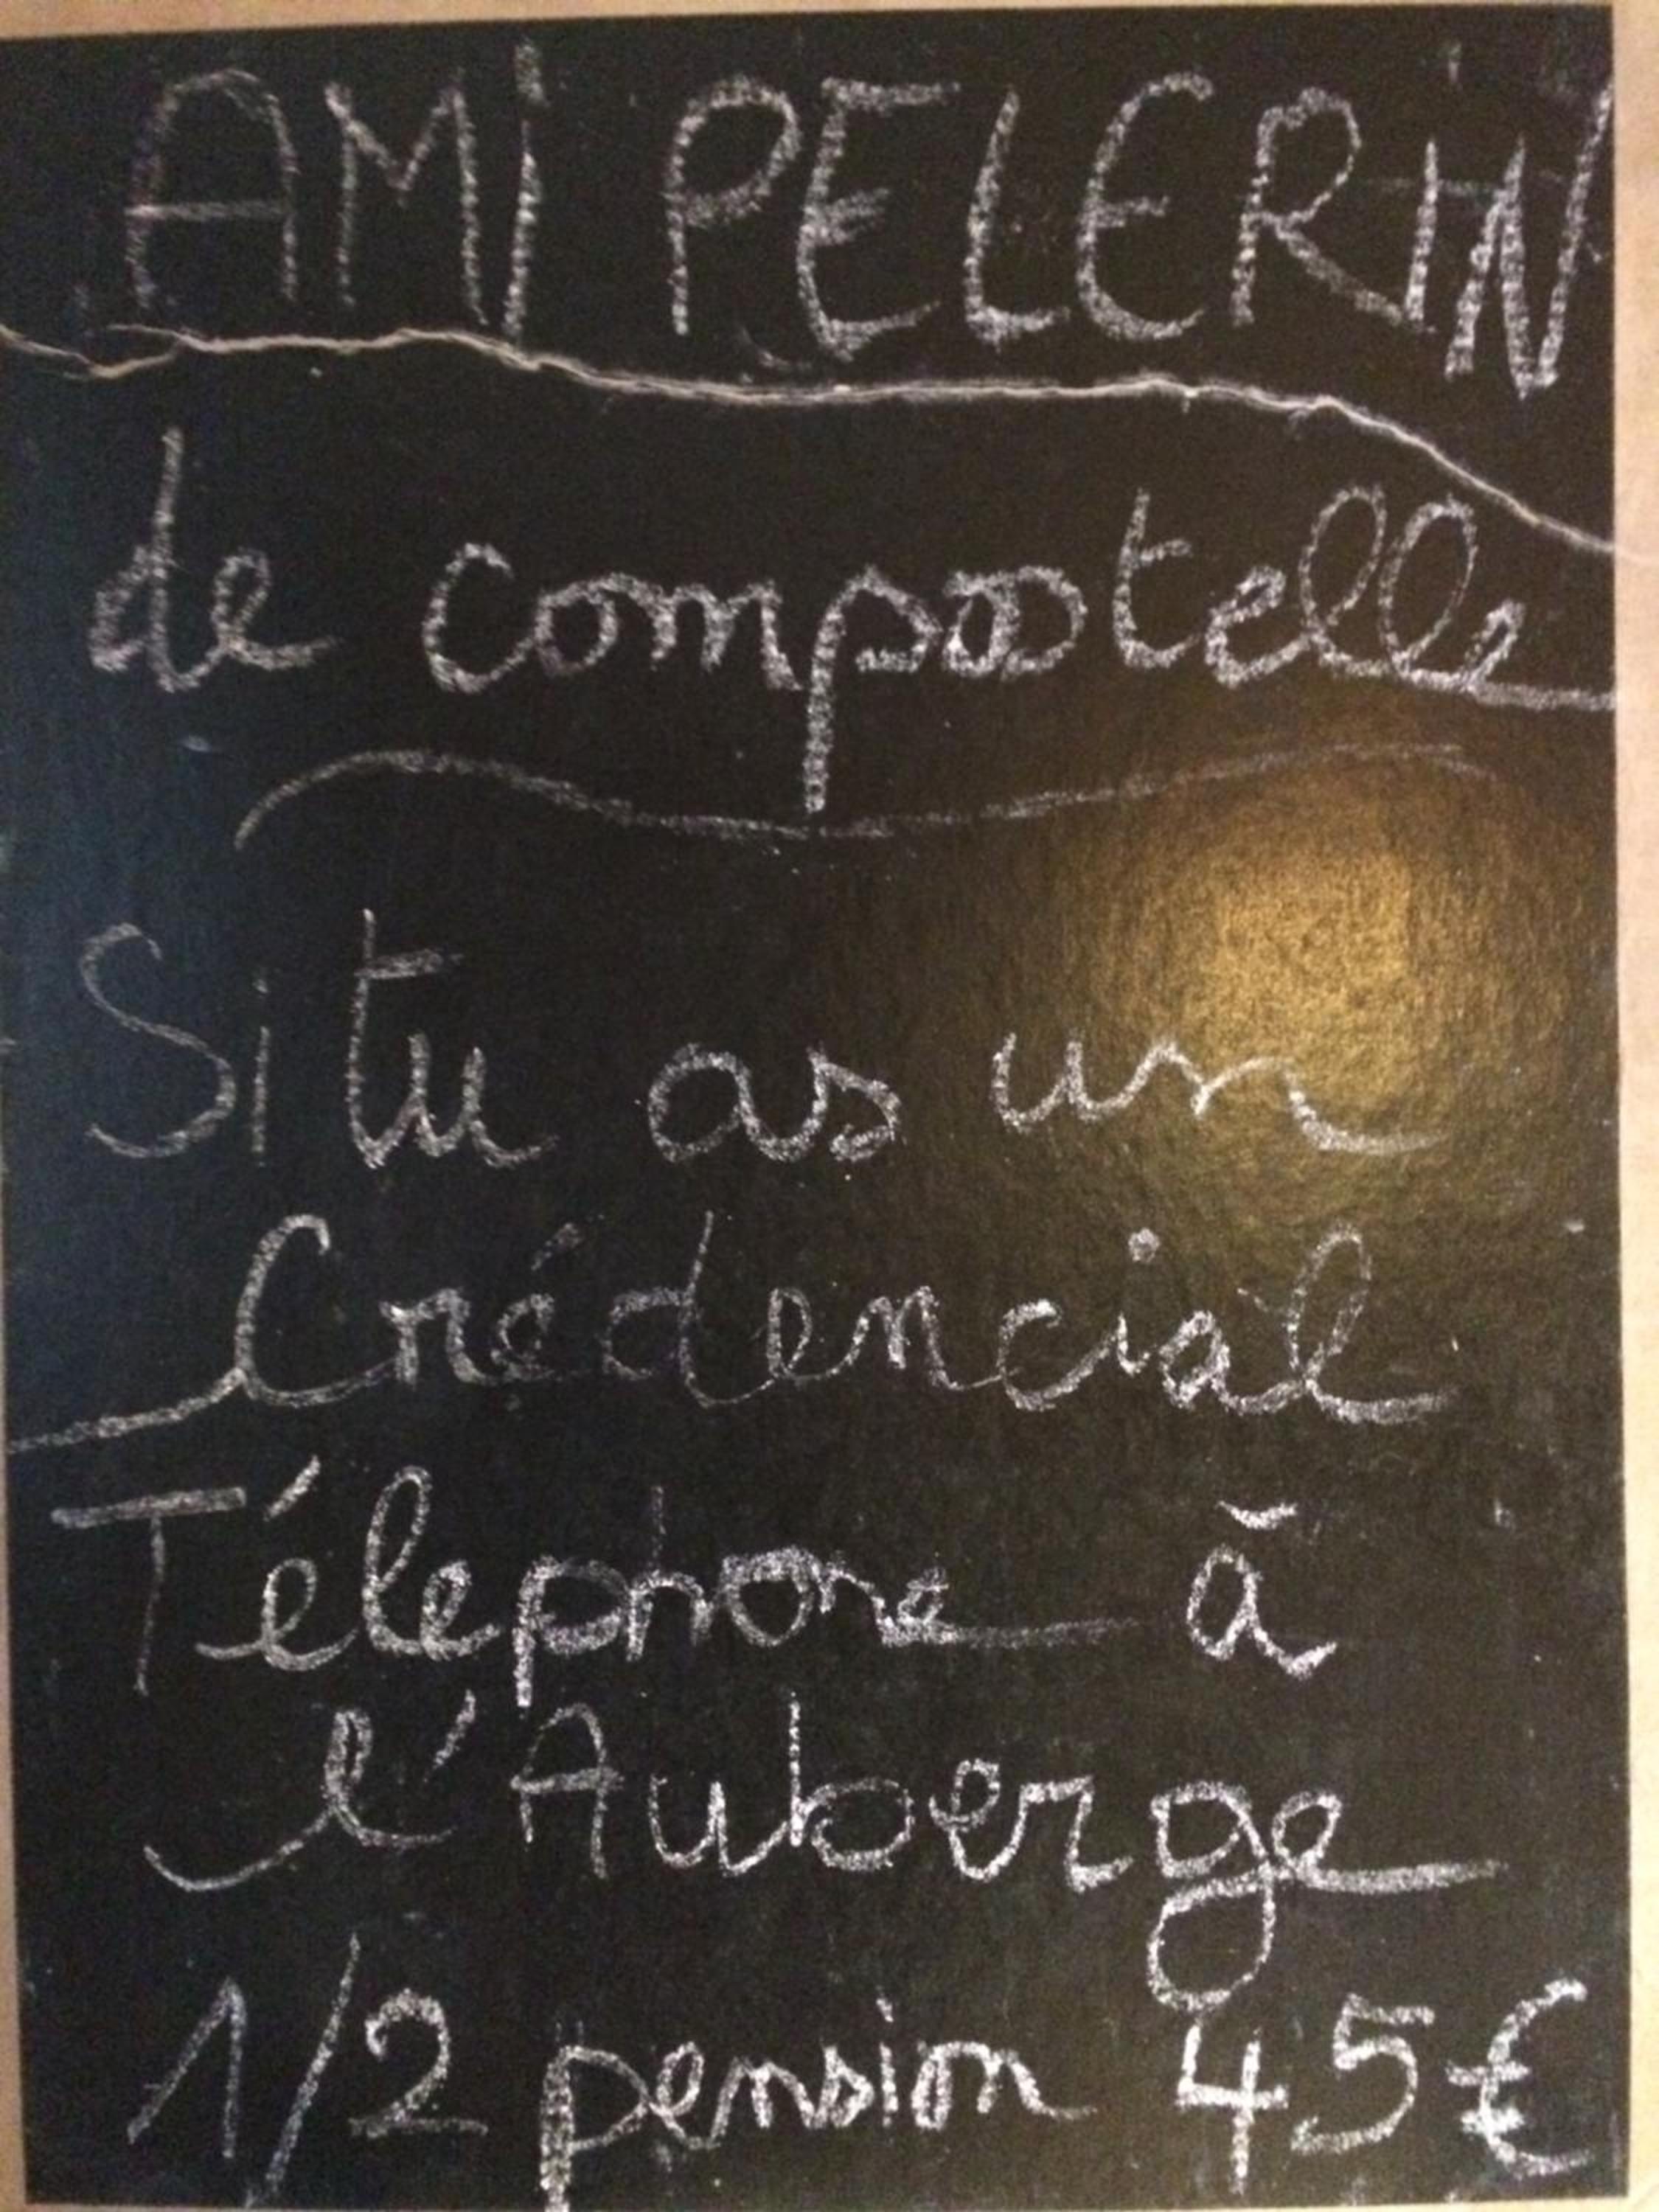 AMI PELERIN
de compostelle
Si tu as un
Crédencial
Télephone à
l'Auberge
1/2 pension 45€